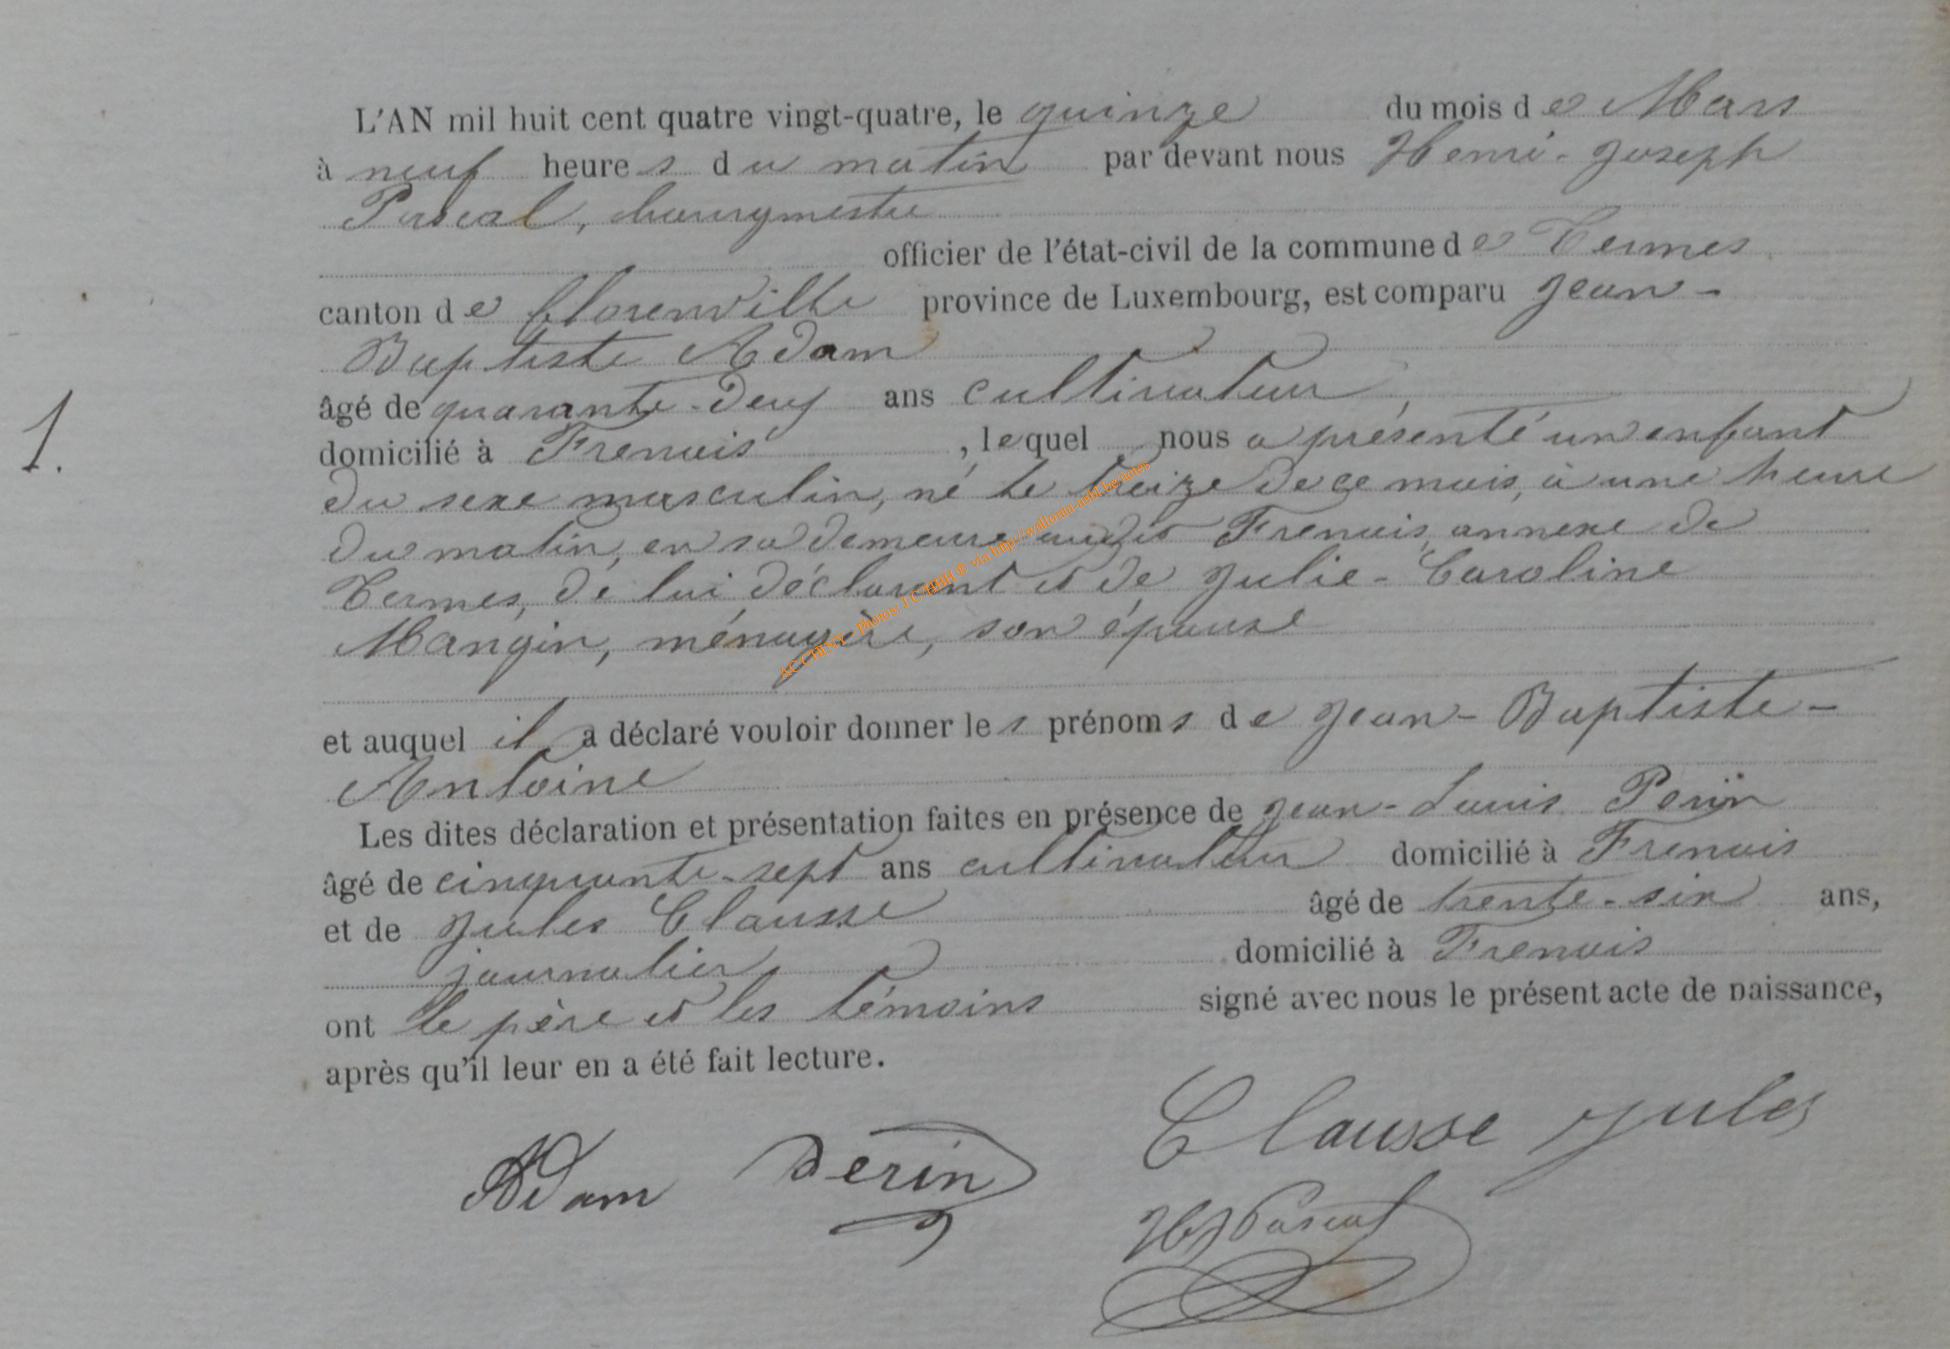 L'AN mil huit cent quatre vingt-quatre, le quinze du mois de Mars
à neuf heures du matin par devant nous Henri-Joseph
Pascal, bourgmestre
officier de l'état-civil de la commune de Termes
canton de Florenville province de Luxembourg, est comparu Jean-
Baptiste Adam
âgé de quarante-deux ans cultivateur,
domicilié à Frenois, lequel nous a présenté un enfant
du sexe masculin, né le treize de ce mois, à une heure
du matin, en sa demeure audit Frenois, annexe de
Termes, de lui déclarant et de Julie-Caroline
Mangin, ménagère, son épouse
et auquel il a déclaré vouloir donner les prénoms de Jean-Baptiste-
Antoine
Les dites déclaration et présentation faites en présence de Jean-Louis Perin
âgé de cinquante-sept ans cultivateur domicilié à Frenois
et de Jules Clausse âgé de trente-six ans,
journalier domicilié à Frenois
ont le père et les témoins signé avec nous le présent acte de naissance,
après qu'il leur en a été fait lecture.
1.
Adam Perin Clausse Jules
HJPascal